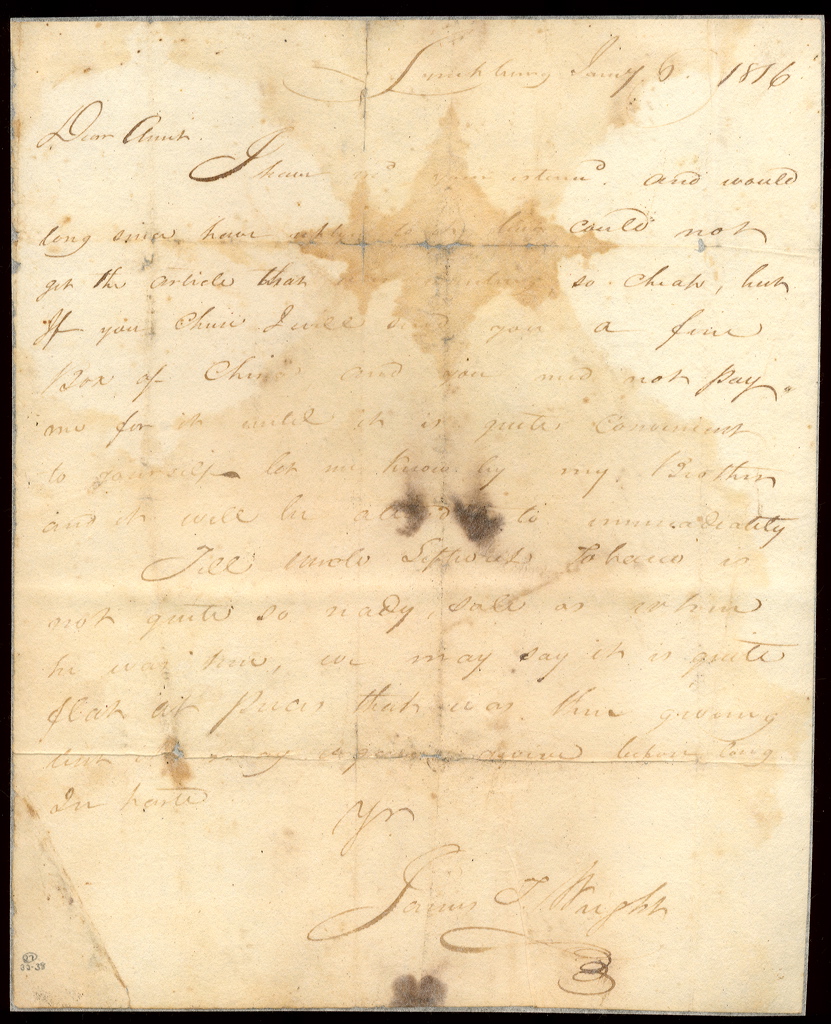 Lynchburg Jany. 6. 1816
Dear Aunt.
I have recd your esteemd. and would
long since have could not
get the article that so cheap, but
If you Chuse I will send you a fine
Box of China and you need not pay.
me for it until it is quite Convenient
to yourself let me know by my Brother
and it will be attended to immediately
Tell uncle Tobacco is
not quite so ready, sale as when
he was here, we may say it is quite
flat at prices that was then giveing
but it may again revive before long
In haste
Yr
James T Wright
33-38